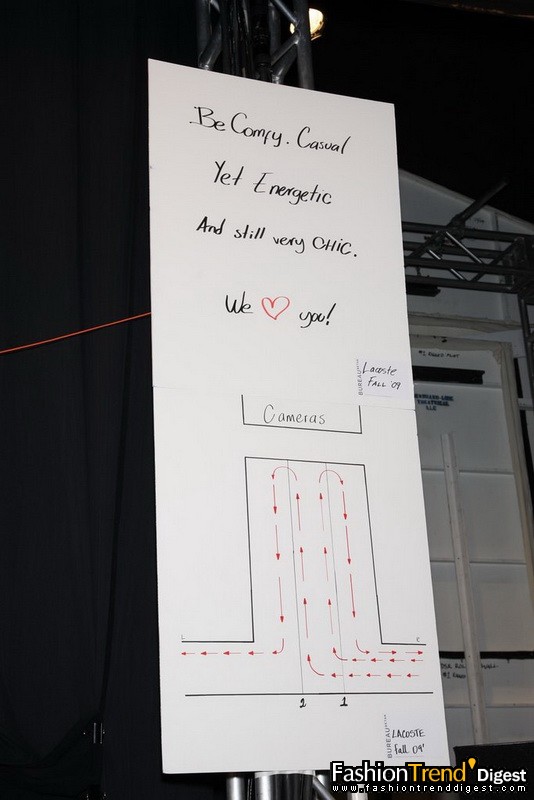 Be Comfy. Casual
Yet Energetic
And still very CHIC.
We ♡ you!
BUREAU
Lacoste
Fall '09
Cameras
2 1
BUREAU
LACOSTE
Fall 09'
FashionTrend'Digest
www.fashiontrenddigest.com